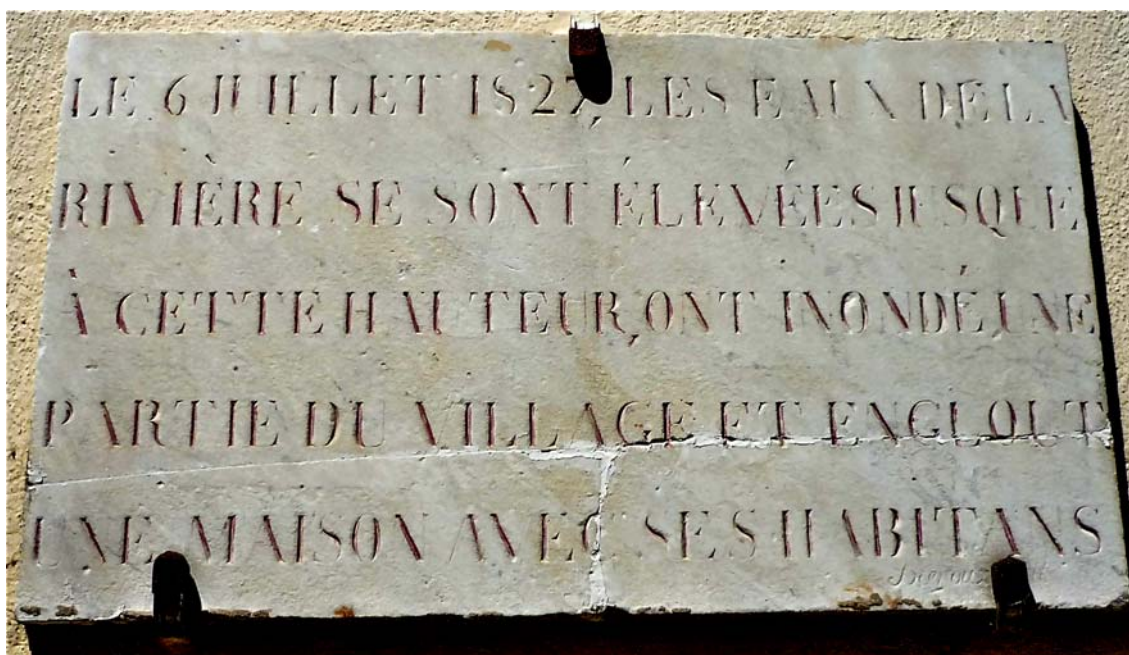 LE 6 JUILLET 1827, LES EAUX DE LA
RIVIÈRE SE SONT ÉLEVÉES JUSQUE
À CETTE HAUTEUR, ONT INONDÉ UNE
PARTIE DU VILLAGE ET ENGLOUT
UNE MAISON AVEC SES HABITANS